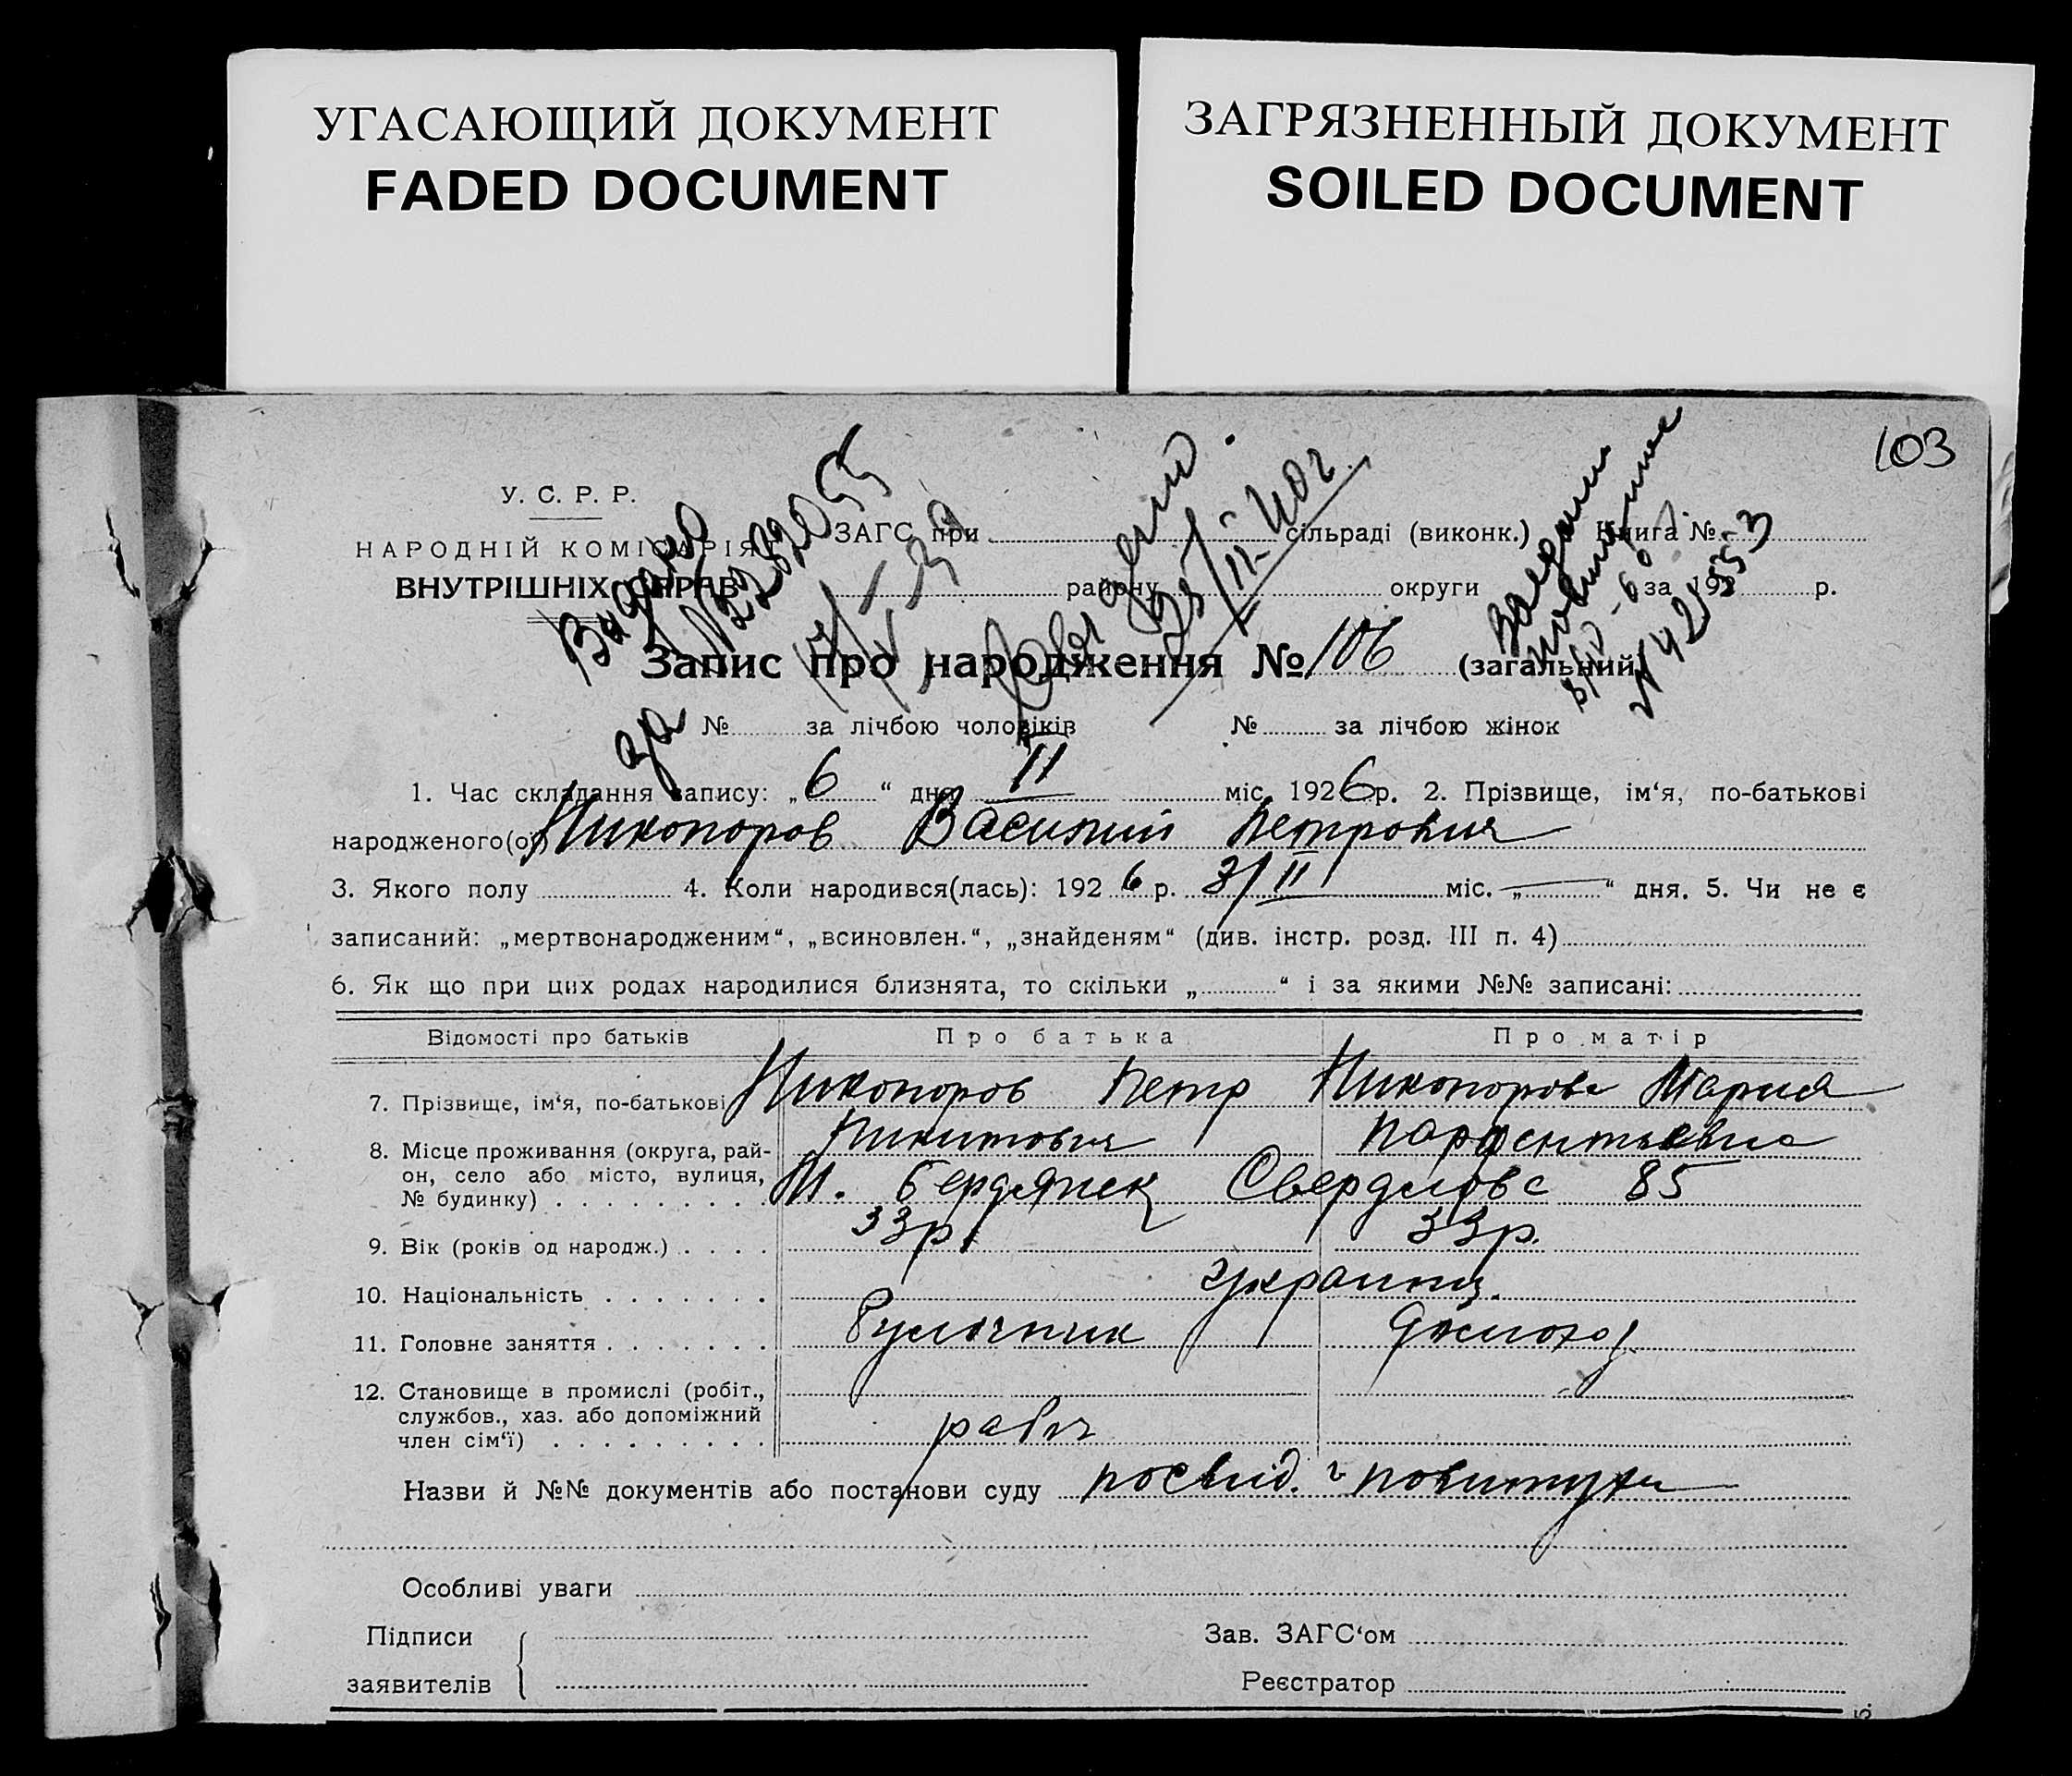 УГАСАЮЩИЙ ДОКУМЕНТ
FADED DOCUMENT
ЗАГРЯЗНЕННЫЙ ДОКУМЕНТ
SOILED DOCUMENT
103
У. С. Р. Р.
НАРОДНІЙ КОМІСАРІЯТ
ВНУТРІШНІХ СПРАВ
ЗАГС при сільраді (виконк.) Книга №
району округи за 192 р.
Видано
за №
Запис про народження № 106 (загальний)
№ за лічбою чоловіків № за лічбою жінок
1. Час складання запису: „6“ дня II міс. 1926 р. 2. Прізвище, ім‘я, по-батькові
народженого(ої) Никопоров Василий Петрович
3. Якого полу 4. Коли народився(лась): 1926 р. 3/II міс. „—“ дня. 5. Чи не є
записаний: „мертвонародженим“, „всиновлен.“, „знайденям“ (див. інстр. розд. III п. 4)
6. Як що при цих родах народилися близнята, то скільки „ “ і за якими №№ записані:
Відомості про батьків Про батька Про матір
7. Прізвище, ім‘я, по-батькові Никопоров Петр Никопорова Мария
Никитович Парфентьевна
8. Місце проживання (округа, район, село або місто, вулиця, № будинку) М. Бердянск Свердлова 85
9. Вік (років од народж.) 33р. 33р.
10. Національність украинц.
11. Головне заняття домохоз
12. Становище в промислі (робіт., службов., хаз. або допоміжний член сім‘ї)
Назви й №№ документів або постанови суду посвид. повитухи
Особливі уваги
Підписи заявителів
Зав. ЗАГС‘ом
Реєстратор